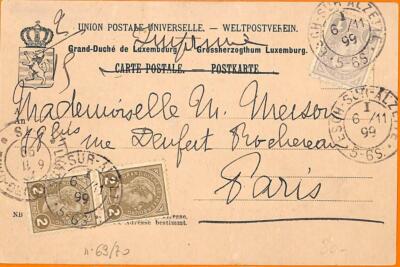 UNION POSTALE UNIVERSELLE. – WELTPOSTVEREIN.
Grand-Duché de Luxembourg. Grossherzogthum Luxemburg.
CARTE POSTALE. – POSTKARTE
ESCH-SUR-ALZETTE
I
6 /11
99
5-6S.
ESCH-SUR-ALZETTE
I
6 /11
99
5-6S.
Mademoiselle M. Merson
rue Denfert Rochereau
Paris
2
2
99
5-6S
NB
Adresse bestimmt.
n° 69/70